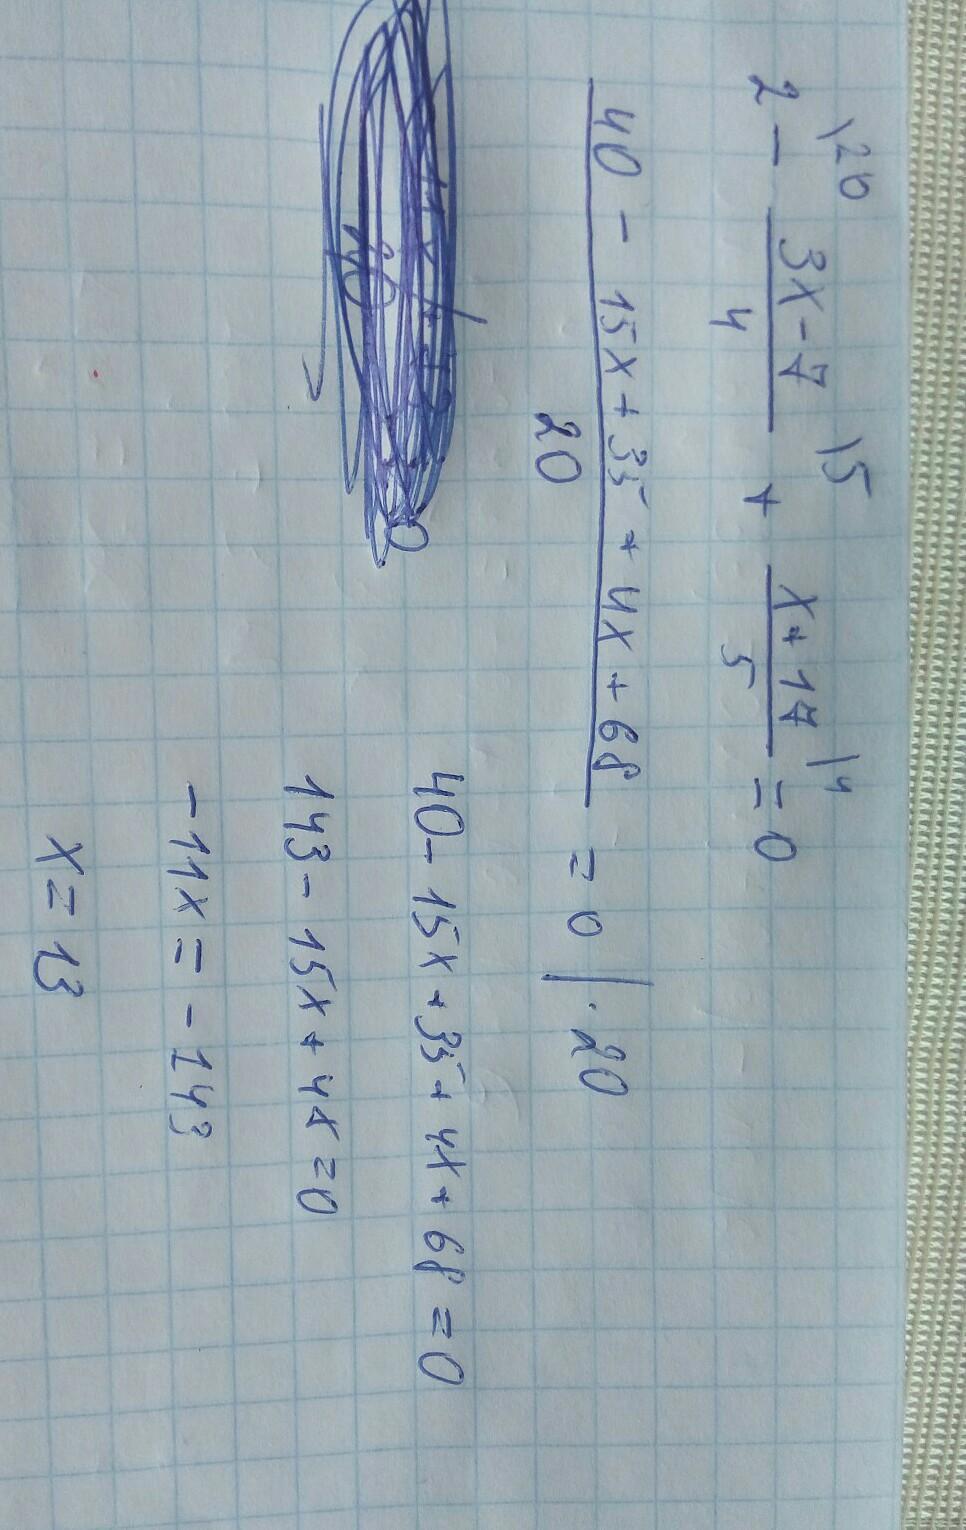 2 - \20 3x-7/4 \5 + x+17/5 \4 = 0
40 - 15x + 35 + 4x + 68 / 20 = 0 | · 20
40 - 15x + 35 + 4x + 68 = 0
143 - 15x + 4x = 0
-11x = -143
x = 13